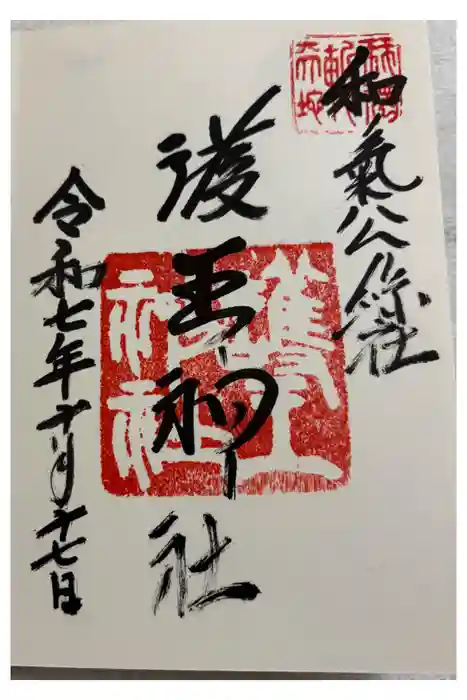 和氣公綜社
護王神社
令和七年十月十七日
護王
神社